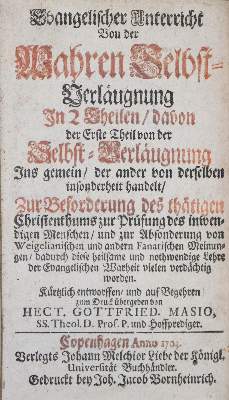 Evangelischer Unterricht
Von der
Wahren Selbst-
Verläugnung
In 2 Theilen / davon
der Erste Theil von der
Selbst-Verläugung
Ins gemein / der ander von derselben
insonderheit handelt /
Zur Beforderung des thätigen
Christenthums zur Prüfung des inwen-
digen Menschen / und zur Absonderung von
Weigelianischen und andern Fanatischen Meinun-
gen / dadurch diese heilsame und nothwendige Lehre
der Evangelischen Warheit vielen verdächtig
worden.
Kürtzlich entworffen / und auf Begehren
zum Druck übergeben von
HECT. GOTTFRIED. MASIO,
SS. Theol. D. Prof. P. und Hoffprediger.
Copenhagen Anno
Verlegts Johann Melchior Liebe der Königl.
Universität Buchhändler.
Gedruckt bey Joh. Jacob Bornheinrich.